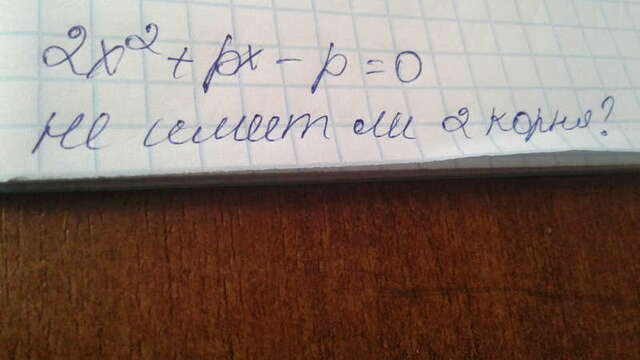 2x² + px - p = 0
не имеет ли 2 корня?